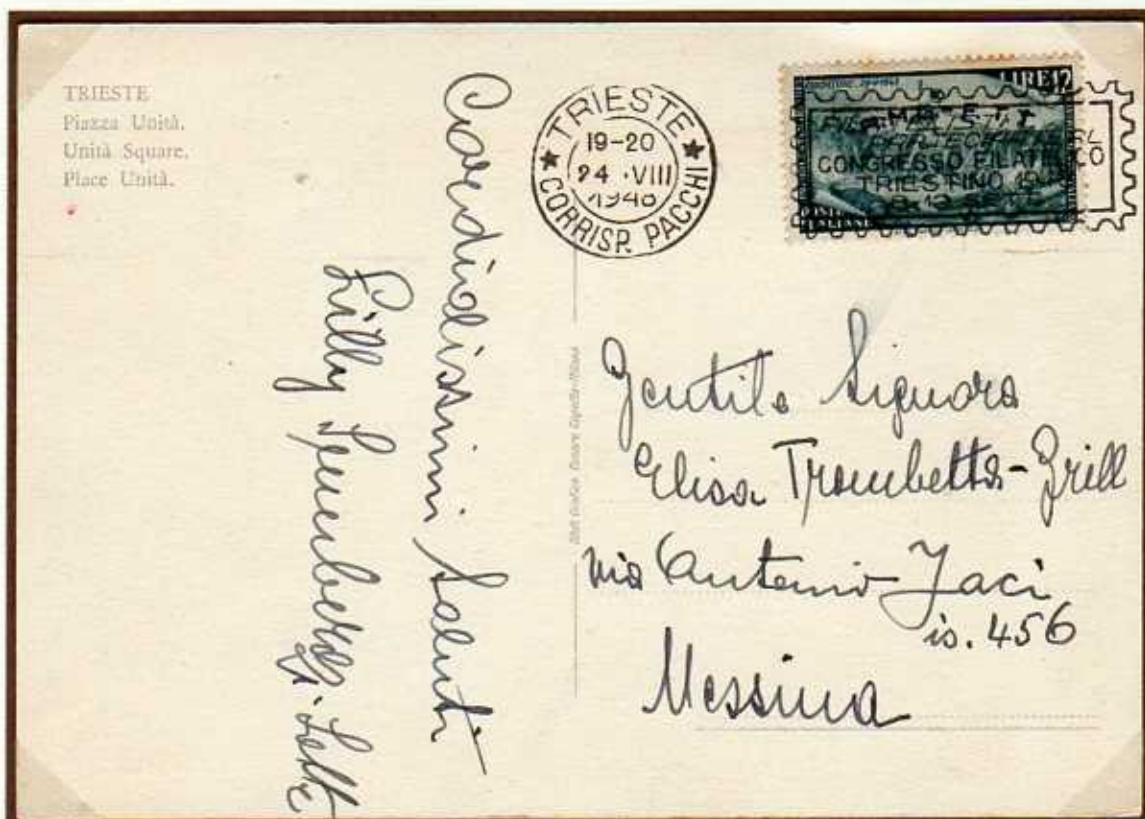 TRIESTE
Piazza Unità.
Unità Square.
Place Unità.
Cordialissimi saluti
Lilly
TRIESTE
19-20
24 · VIII
1948
CORRISP. PACCHI
LIRE 12
CONGRESSO FILATELICO
TRIESTINO
Gentile Signora
Elisa Trombetta-Grill
via Antonio Jaci
is. 456
Messina